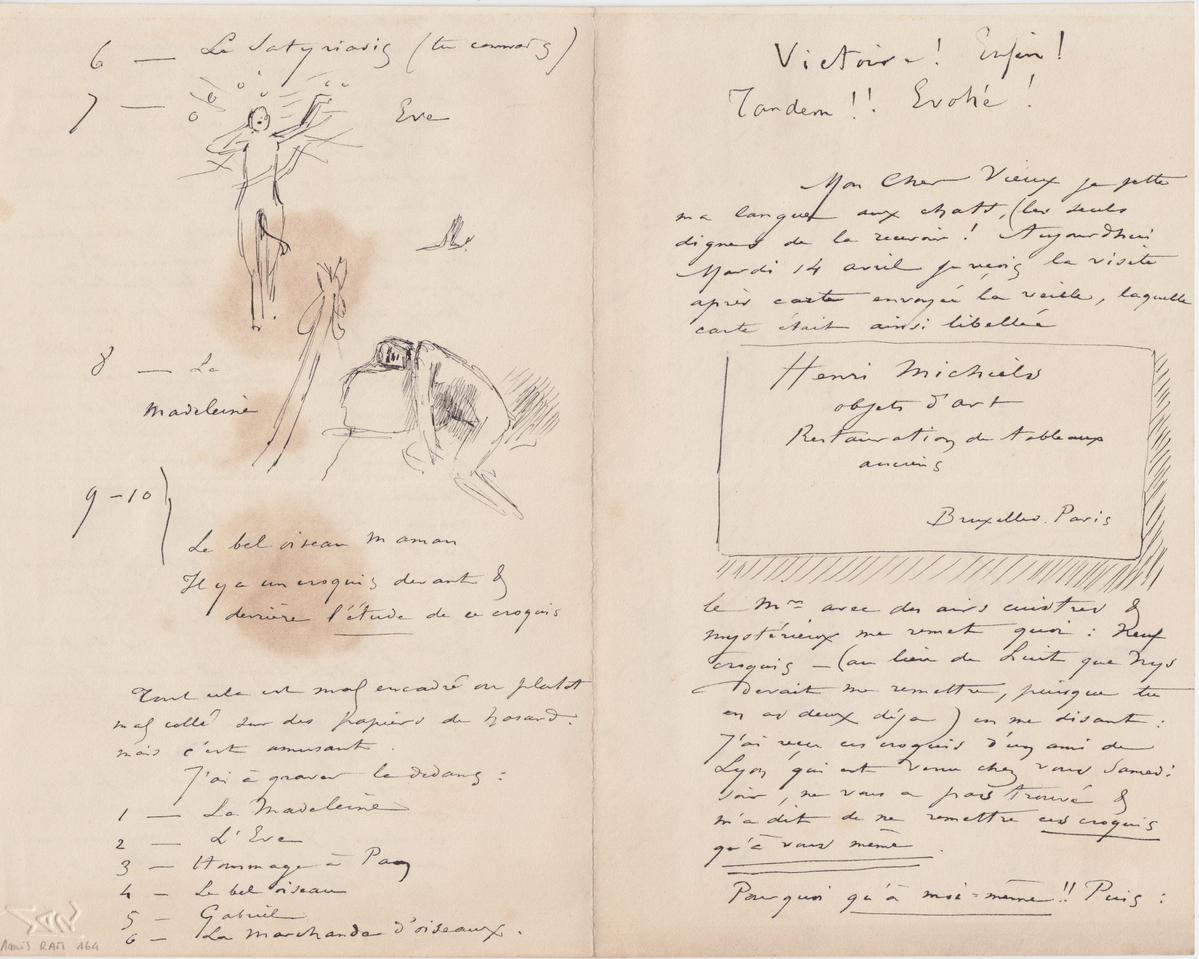 6 — Le Satyriasis (tu connais)
7 — Eve
8 — La
Madeleine
9-10
Le bel oiseau maman
Il y a un croquis devant &
derrière l'étude de ce croquis
Tout cela est mal encadré ou plutot
mal collé sur des papiers de hasard.
mais c'est amusant.
J'ai à graver la dedans :
1 — La Madeleine
2 — L'Eve
3 — Hommage à Pan
4 — Le bel oiseau
5 — Gabriel
6 — La Marchande d'oiseaux.
Amis RAM 164
Victoire ! Enfin !
Tandem !! Evohé !
Mon Cher Vieux je jette
ma langue aux chats, (les seuls
dignes de la recevoir ! Aujourdhui
Mardi 14 avril je reçois la visite
après carte envoyée la veille, laquelle
carte était ainsi libellée
Henri Michiels
objets d'art
Restauration de tableaux
anciens
Bruxelles. Paris
le Mr avec des airs cuistres &
mystérieux me remet quoi : Neuf
croquis — (au lieu de huit que Nys
devait me remettre, puisque tu
en as deux déja) en me disant :
J'ai reçu ces croquis d'un ami de
Lyon qui est venu chez vous Samedi
soir, ne vous a pas trouvé &
m'a dit de ne remettre ces croquis
qu'à vous même.
Pourquoi qu'à moi-même !! Puis :